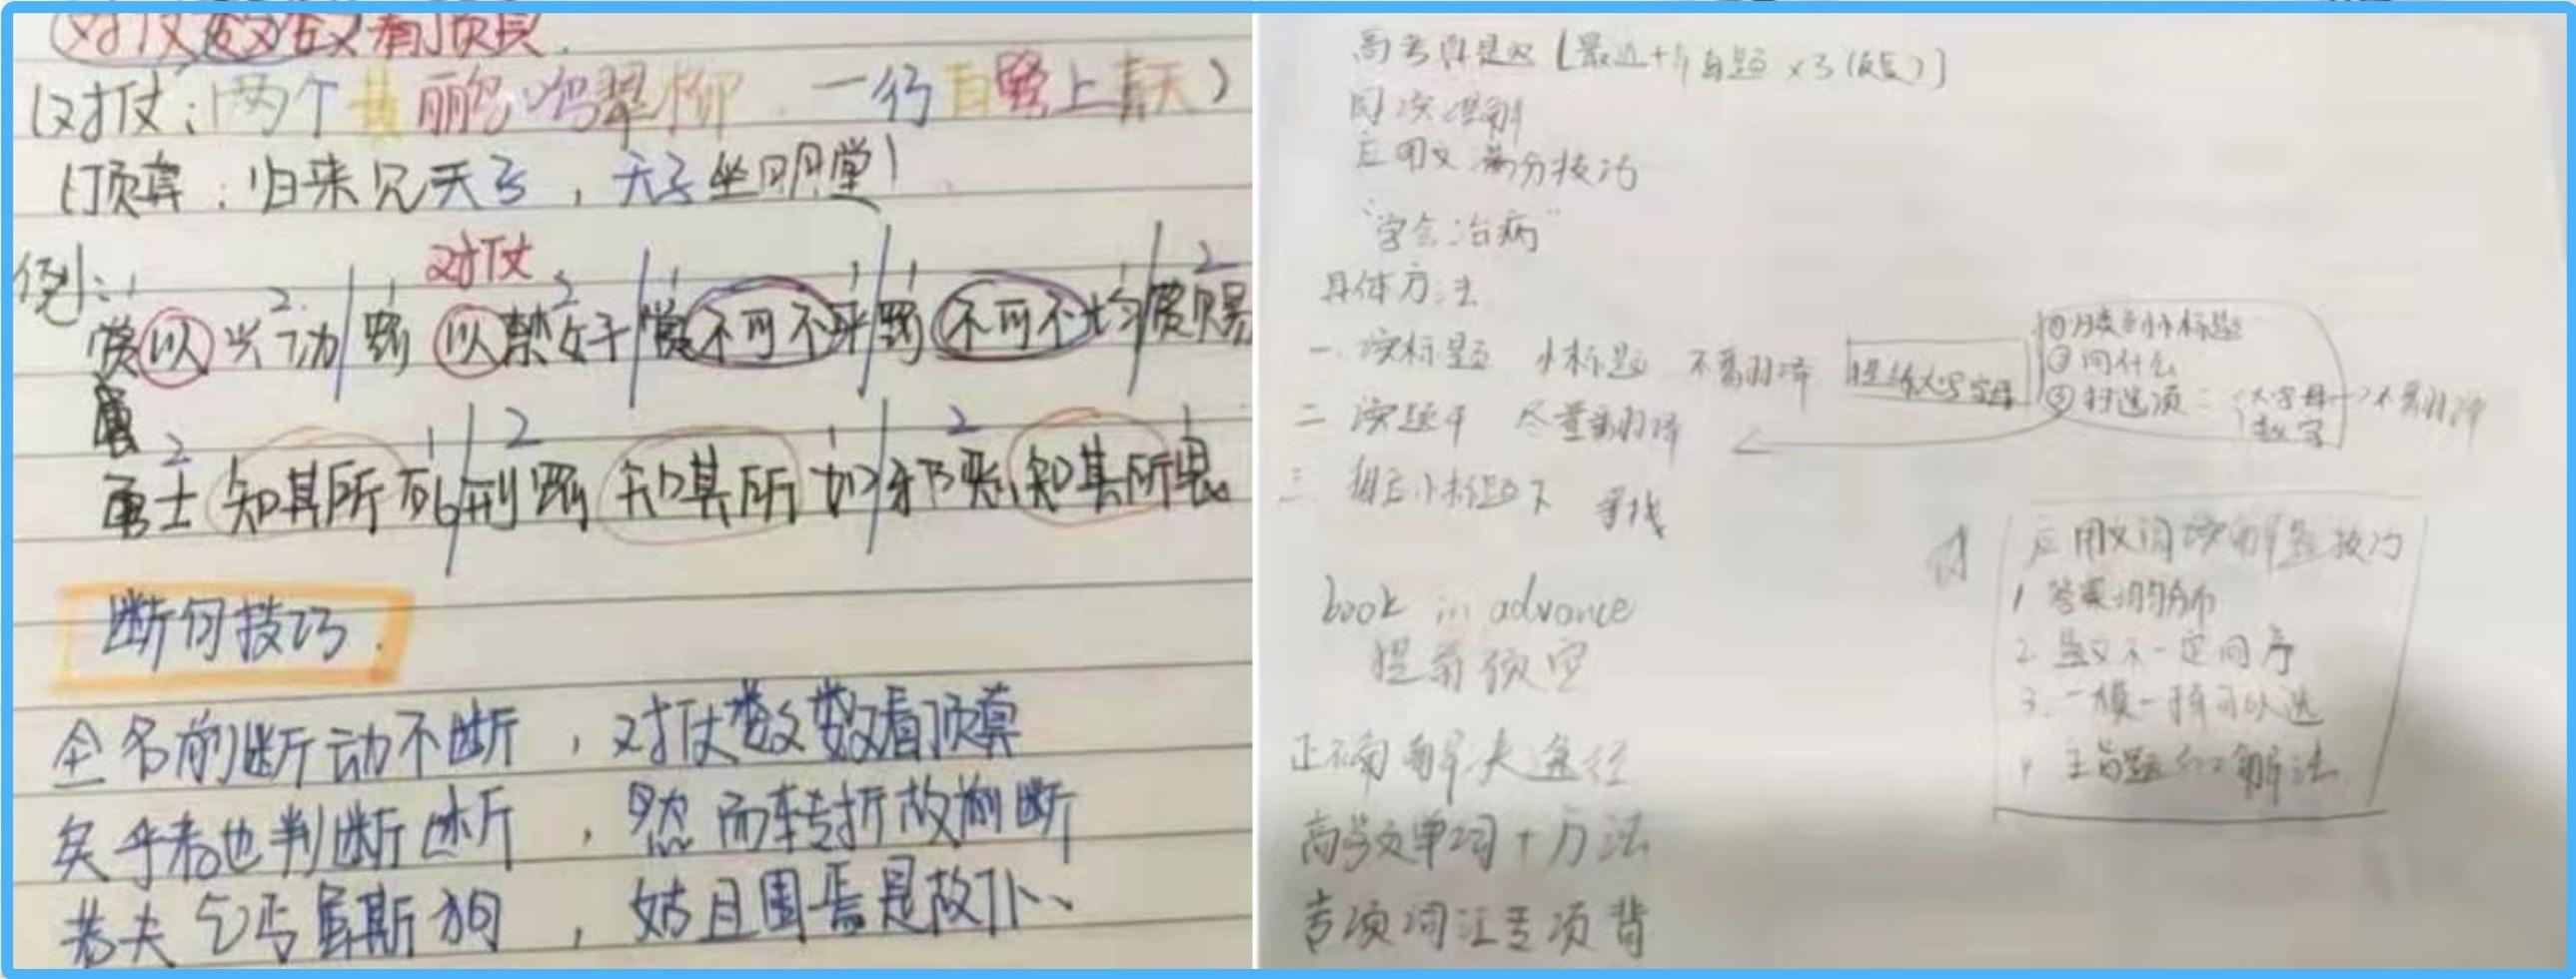 对仗数数看顶真.
(对仗:两个黄鹂鸣翠柳 一行白鹭上青天)
(顶真:归来见天子,天子坐明堂)
例: 对仗
赏以兴功|罚以禁奸|赏不可不平|罚不可不均|赏赐
勇士知其所死|刑罚知其所加|邪恶知其所畏
断句技巧.
全名前断动不断,对仗数数看顶真
矣乎者也判断断,然而转折故前断
若夫 斯 ,姑且 焉是故
高考真题 [最近十年真题×3(反复)]
阅读理解
应用文 满分技巧
"学会治病"
具体方法
一、读标题 小标题 不要翻译
二 读题干 尽量翻译
三 到小标题下 寻找
大写字母
①归类到小标题
②问什么
③扫选项:大写字母→不要翻译
数字
book in advance
提前预定
正确解决途径
高频单词+方法
专项词汇专项背
应用文阅读解题技巧
1 答案均匀分布
2 题文不一定同序
3. 一模一样可以选
4 主旨题 解法